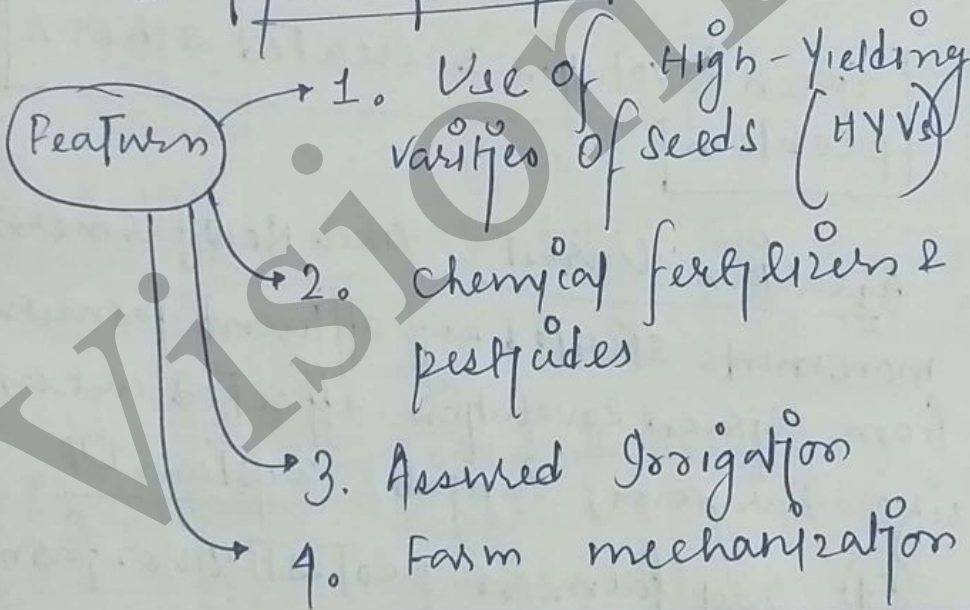 Features
1. Use of High-Yielding
varities of seeds (HYVs)
2. Chemical fertilizers &
pesticides
3. Assured Irrigation
4. Farm mechanization
Vision